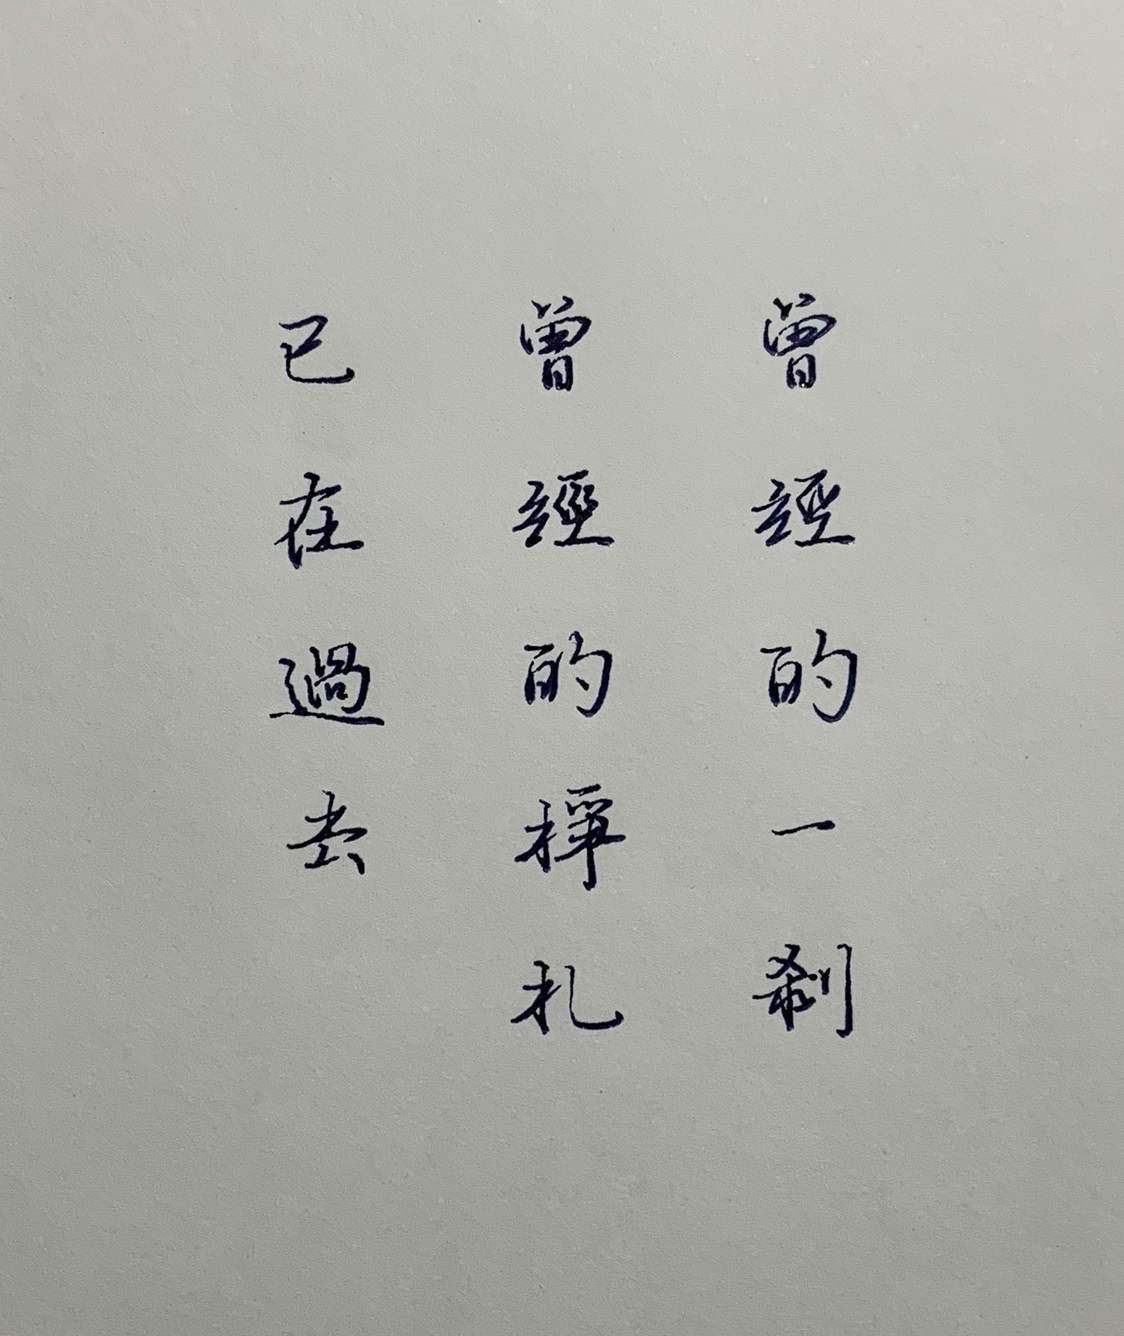 曾經的一剎
曾經的掙札
已在過去